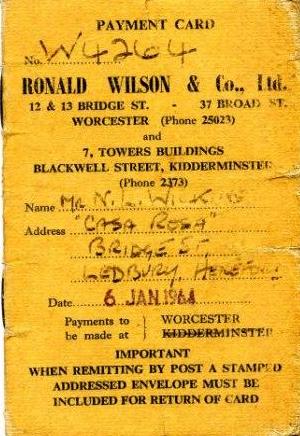 PAYMENT CARD
No. W4264
RONALD WILSON & Co., Ltd.
12 & 13 BRIDGE ST. - 37 BROAD ST.
WORCESTER (Phone 25023)
and
7, TOWERS BUILDINGS
BLACKWELL STREET, KIDDERMINSTER
(Phone 2373)
Name Mr N. L.
Address "CASA ROSA"
BRIDGE ST
LEDBURY,
Date 6 JAN 1964
Payments to be made at } WORCESTER
KIDDERMINSTER
IMPORTANT
WHEN REMITTING BY POST A STAMPED
ADDRESSED ENVELOPE MUST BE
INCLUDED FOR RETURN OF CARD